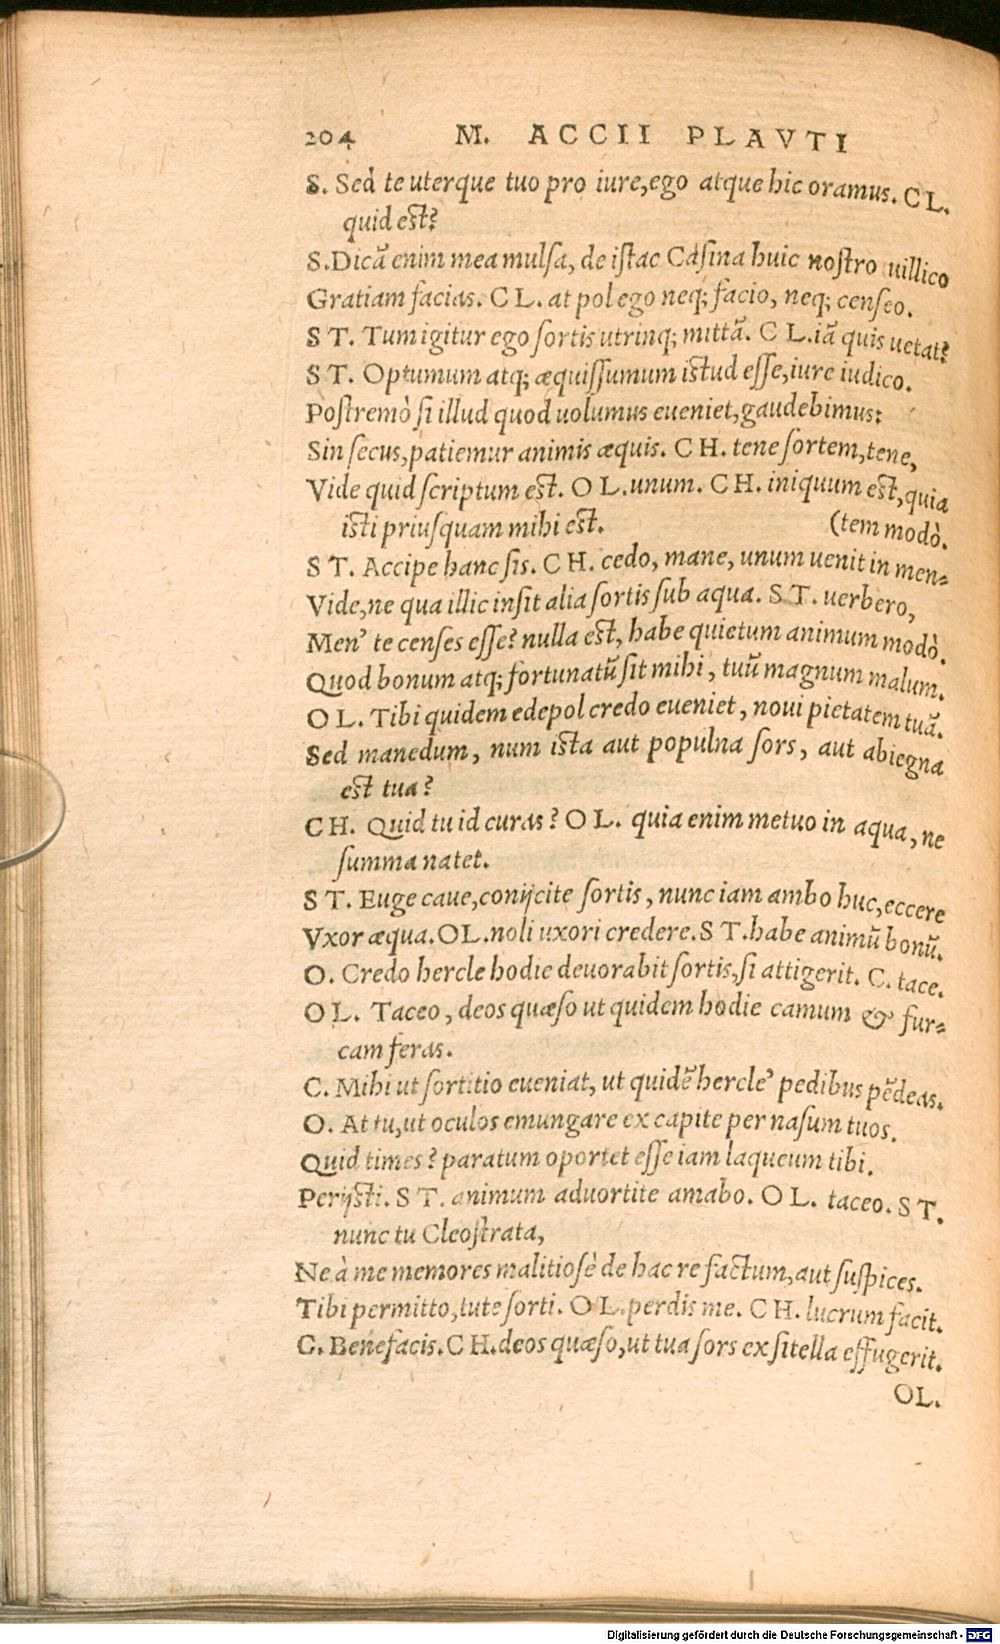 204 M. ACCII PLAVTI
S. Sed te uterque tuo pro iure,ego atque hic oramus. C L.
quid est?
S.Dicā enim mea mulsa, de istac Casina huic nostro uillico
Gratiam facias. C L. at pol ego neq; facio, neq; censeo.
S T. Tum igitur ego sortis utrinq; mittā. C L.iā quis uetat?
S T. Optumum atq; æquissumum istud esse,iure iudico.
Postremò si illud quod uolumus eueniet,gaudebimus:
Sin secus,patiemur animis æquis. C H. tene sortem,tene,
Vide quid scriptum est. O L.unum. C H. iniquum est,quia
isti priusquam mihi est. (tem modò.
S T. Accipe hanc sis. C H. cedo, mane, unum uenit in men-
Vide,ne qua illic insit alia sortis sub aqua. S T. uerbero,
Men' te censes esse? nulla est, habe quietum animum modò.
Quod bonum atq; fortunatū sit mihi, tuū magnum malum.
O L. Tibi quidem edepol credo eueniet, noui pietatem tuā.
Sed manedum, num ista aut populna sors, aut abiegna
est tua?
C H. Quid tu id curas? O L. quia enim metuo in aqua, ne
summa natet.
S T. Euge caue,conijcite sortis, nunc iam ambo huc,eccere
Vxor æqua.OL.noli uxori credere.S T.habe animū bonū.
O. Credo hercle hodie deuorabit sortis,si attigerit. C. tace.
O L. Taceo, deos quæso ut quidem hodie camum & fur-
cam feras.
C. Mihi ut sortitio eueniat, ut quidē hercle' pedibus pēdeas.
O. At tu,ut oculos emungare ex capite per nasum tuos.
Quid times? paratum oportet esse iam laqueum tibi.
Perijsti. S T. animum aduortite amabo. O L. taceo. S T.
nunc tu Cleostrata,
Ne à me memores malitiosè de hac re factum,aut suspices.
Tibi permitto,tute sorti. O L.perdis me. C H. lucrum facit.
C. Benefacis.C H.deos quæso,ut tua sors ex sitella effugerit.
OL.
Digitalisierung gefördert durch die Deutsche Forschungsgemeinschaft - DFG